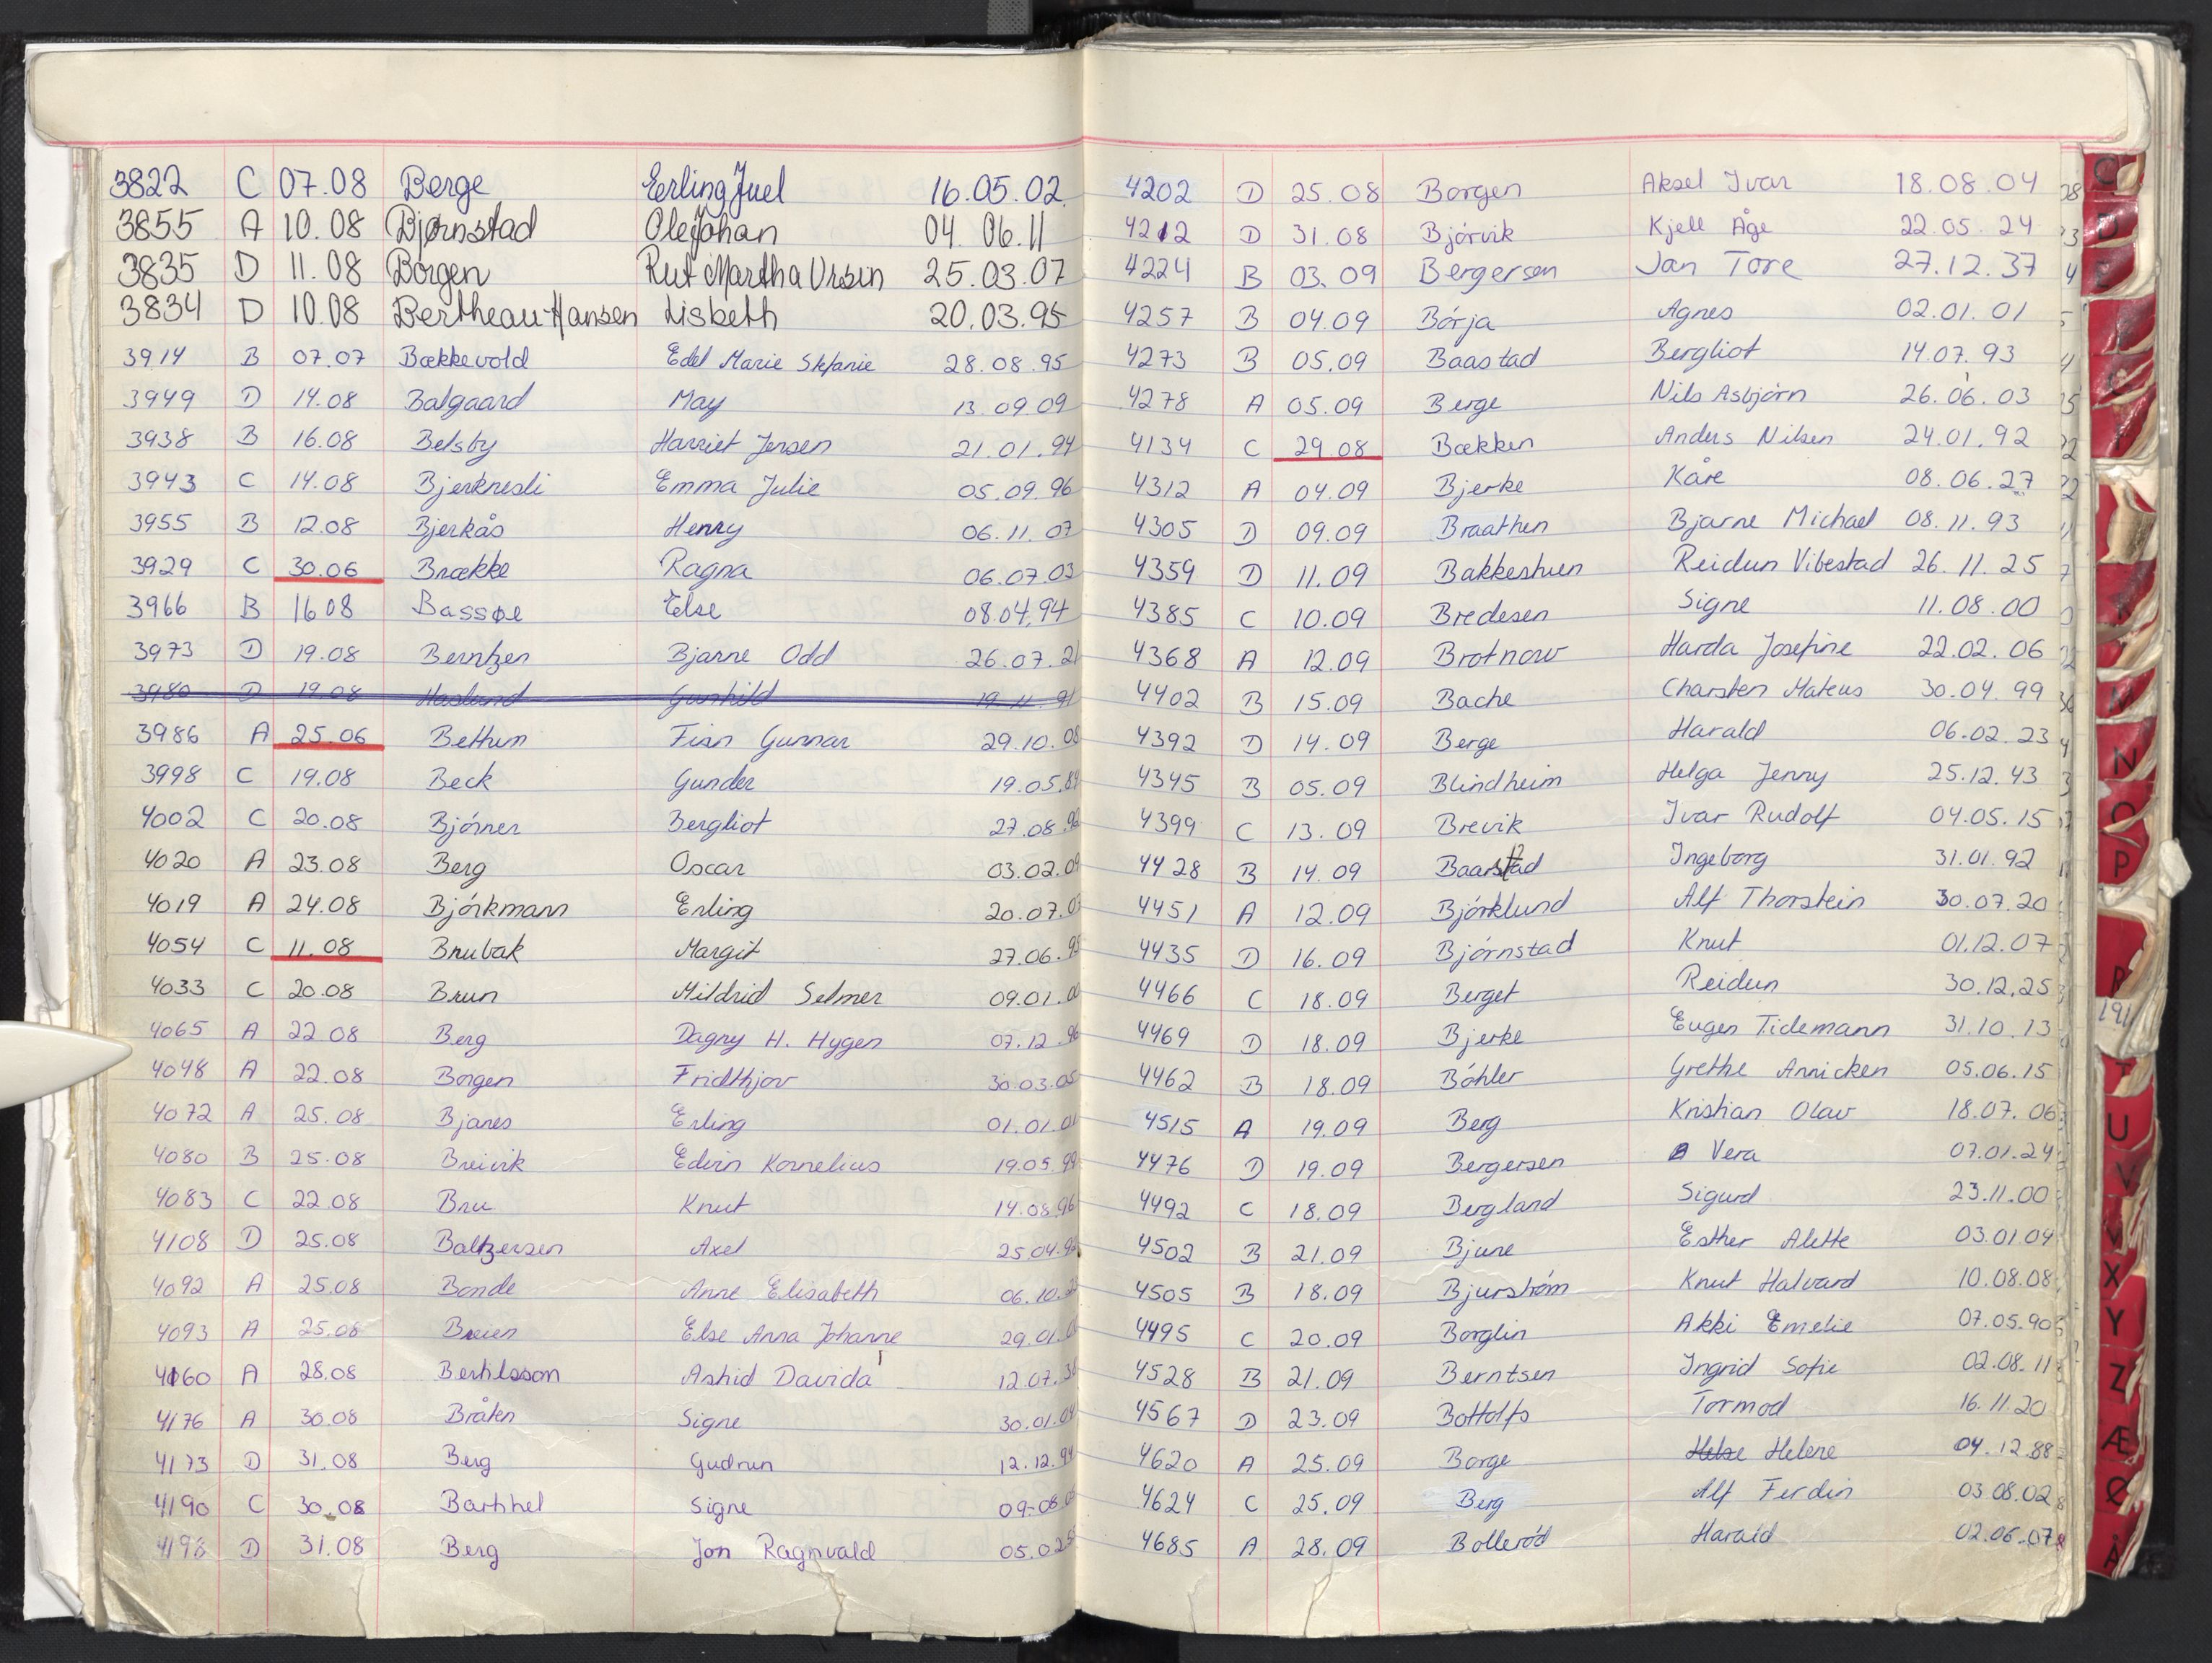 3822 C 07.08 Berge Erling Juel 16.05.02.
3855 A 10.08 Bjørnstad Ole Johan 04.06.11
3835 D 11.08 Borgen Rut Martha Ursin 25.03.07
3834 D 10.08 Bertheau-Hansen Lisbeth 20.03.95
3914 B 07.07 Bækkevold Edel Marie Stefanie 28.08.95
3949 D 14.08 Balgaard May 13.09.09
3938 B 16.08 Belsby Harriet Jensen 21.01.94
3943 C 14.08 Bjerknesli Emma Julie 05.09.96
3955 B 12.08 Bjerkås Henry 06.11.07
3929 C 30.06 Brække Ragna 06.07.03
3966 B 16 08 Bassøe Else 08.04.94
3973 D 19.08 Berntzen Bjarne Odd 26.07.21
3980 D 19.08 Haslund Gunhild 19.11.91
3986 A 25.06 Bettum Finn Gunnar 29.10.08
3998 C 19.08 Beck Gunder 19.05.
4002 C 20.08 Bjórner Bergliot 27.08.
4020 A 23.08 Berg Oscar 03.02.09
4019 A 24.08 Bjórkmann Erling 20.07.
4054 C 11.08 Brubak Margit 27.06.95
4033 C 20.08 Brun Mildrid Selmer 09.01.00
4065 A 22 08 Berg Dagny H. Hygen 07.12.96
4048 A 22.08 Borgen Fridthjov 30.03.05
4072 A 25.08 Bjanes Erling 01.01.01
4080 B 25.08 Breivik Edvin Kornelius 19.05.99
4083 C 22.08 Bru Knut 14.08.96
4108 D 25.08 Baltzersen Axel 25.04.
4092 A 25.08 Bonde Anne Elisabeth 06.10.
4093 A 25.08 Breien Else Anna Johanne 29.01.
4160 A 28.08 Bertilsson Astrid Davida 12.07.
4176 A 30.08 Bråten Signe 30.01.04
4173 D 31.08 Berg Gudrun 12.12.94
4190 C 30.08 Barthel Signe 09.08.
4198 D 31.08 Berg Jon Ragnvald 05.02.
4202 D 25.08 Borgen Aksel Ivar 18.08.04
4212 D 31.08 Bjórvik Kjell Åge 22.05.24
4224 B 03.09 Bergersen Jan Tore 27.12.37
4257 B 04.09 Bórja Agnes 02.01.01
4273 B 05.09 Baastad Bergliot 14.07.93
4278 A 05.09 Berge Nils Asbjórn 26.06.03
4134 C 29.08 Bækken Anders Nilsen 24.01.92
4312 A 04.09 Bjerke Kåre 08.06.27
4305 D 09.09 Braathen Bjarne Michael 08.11.93
4359 D 11.09 Bakkestuen Reidun Vibestad 26.11.25
4385 C 10.09 Bredesen Signe 11.08.00
4368 A 12.09 Brotnow Harda Josefine 22.02.06
4402 B 15.09 Bache Charsten Mateus 30.04.99
4392 D 14.09 Berge Harald 06.02.23
4345 B 05.09 Blindheim Helga Jenny 25.12.43
4399 C 13.09 Brevik Ivar Rudolf 04.05.15
4428 B 14.09 Baarstad Ingeborg 31.01.92
4451 A 12.09 Bjórklund Alf Thorstein 30.07.20
4435 D 16.09 Bjórnstad Knut 01.12.07
4466 C 18.09 Berget Reidun 30.12.25
4469 D 18.09 Bjerke Eugen Tidemann 31.10.13
4462 B 18.09 Bóhler Grethe Annicken 05.06.15
4515 A 19.09 Berg Kristian Olav 18.07.06
4476 D 19.09 Bergersen Vera 07.01.24
4492 C 18.09 Bergland Sigurd 23.11.00
4502 B 21.09 Bjune Esther Alette 03.01.04
4505 B 18.09 Bjurstróm Knut Halvard 10.08.08
4495 C 20.09 Borglin Akki Emelie 07.05.90
4528 B 21.09 Berntsen Ingrid Sofie 02.08.11
4567 D 23.09 Bottolfs Tormod 16.11.20
4620 A 25.09 Borge Helse Helene 04.12.88
4624 C 25.09 Berg Alf Ferdin 03.08.02
4685 A 28.09 Bolleród Harald 02.06.07
C
D
E
M
N
O
P
R
191
T
U
V
X
Y
Z
Æ
Ø
Å